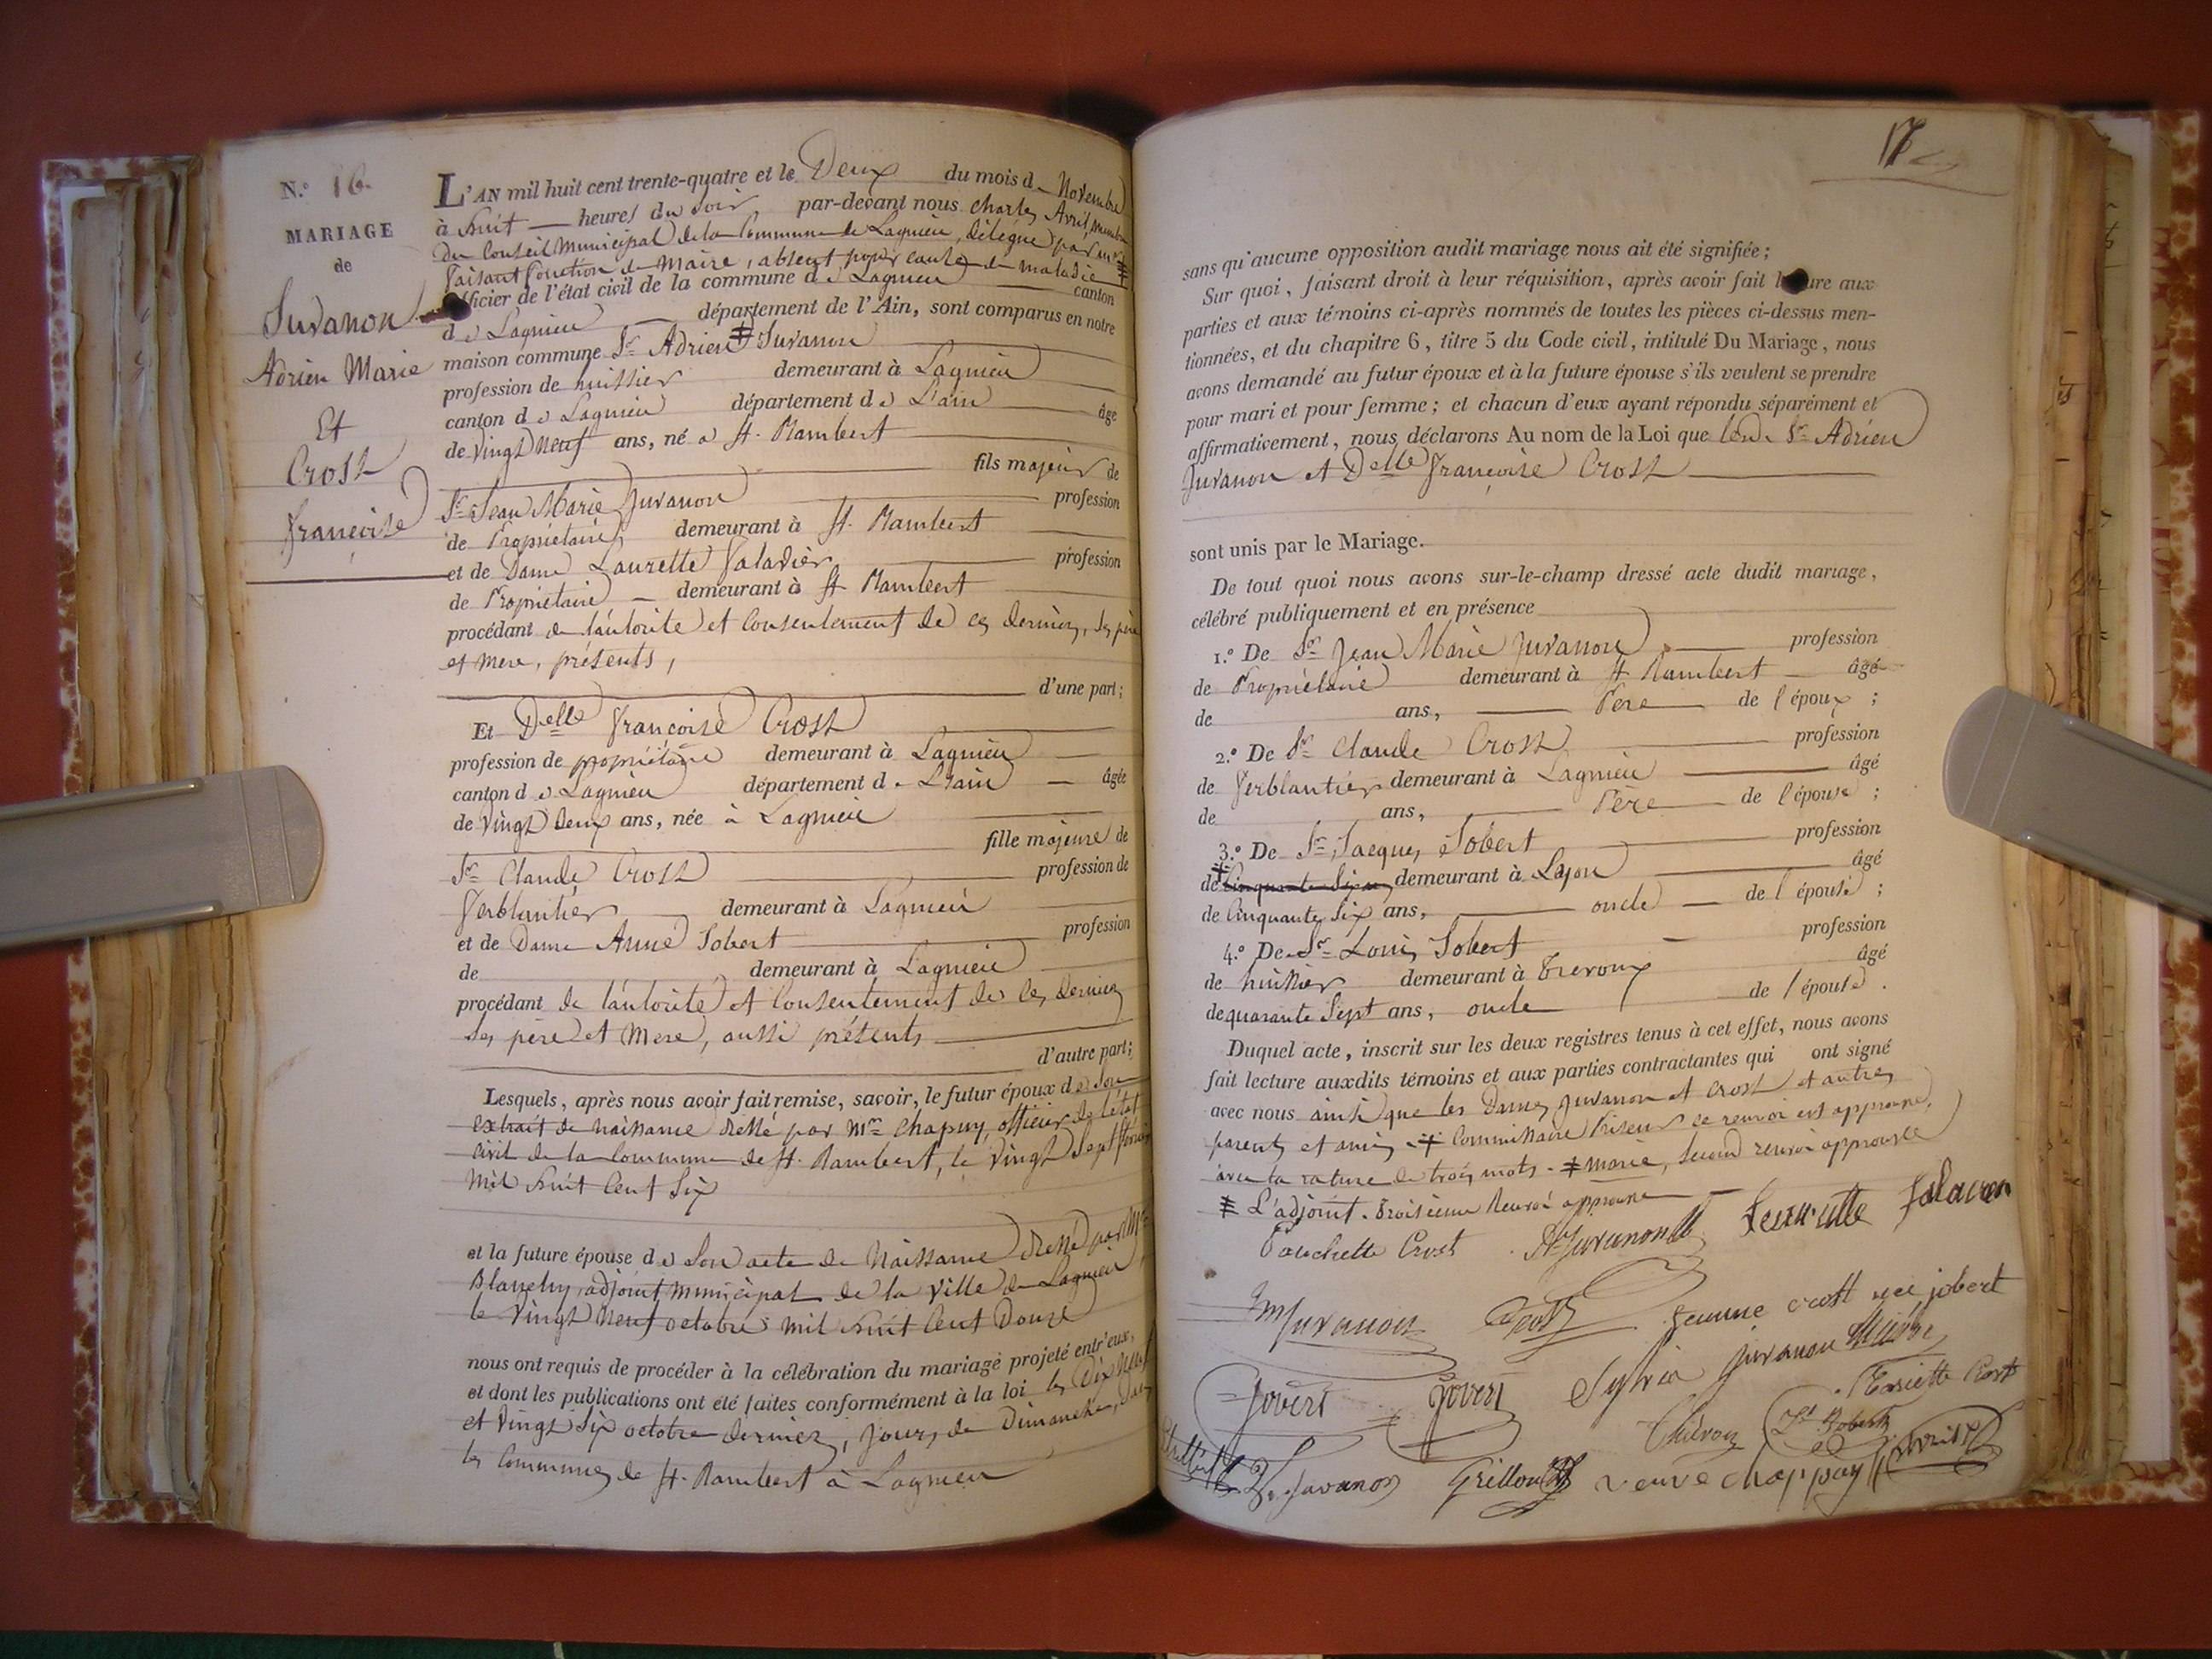 N.° 16
MARIAGE
de
Juvanon
Adrien Marie
Et
Crost
françoise
L'AN mil huit cent trente-quatre et le Deux du mois de Novembre
à huit heures du soir par-devant nous Charles Avril, membre
du Conseil Municipal de la Commune de Lagnieu, délégué par
faisant fonction de Maire, absent pour cause de maladie
officier de l'état civil de la commune de Lagnieu canton
de Lagnieu département de l'Ain, sont comparus en notre
maison commune Sr Adrien ‡ Juvanon
profession de huissier demeurant à Lagnieu
canton de Lagnieu département de L'ain âgé
de vingt neuf ans, né à St. Rambert
fils majeur de
Sr Jean Marie Juvanon profession
de Propriétaire demeurant à St. Rambert
et de Dame Laurette faladier profession
de Propriétaire demeurant à St Rambert
procédant de l'autorité et Consentement de ces derniers, ses père
et mere, présents,
d'une part;
Et Delle françoise Crost
profession de propriétaire demeurant à Lagnieu
canton de Lagnieu département de L'ain âgée
de vingt Deux ans, née à Lagnieu
fille majeure de
Sr Claude Crost profession de
ferblantier demeurant à Lagnieu
et de Dame Anne Jobert profession
de demeurant à Lagnieu
procédant de l'autorité et Consentement de ces derniers
ses père et Mere, aussi présents
d'autre part;
Lesquels, après nous avoir fait remise, savoir, le futur époux de Son
extrait de naissance dressé par Mr Chapuy, officier de l'état
civil de la Commune de St. Rambert, le vingt Sept
Mil huit Cent Six
et la future épouse de Son acte de Naissance dressé par Mr
Blanchy, adjoint municipal de la ville de Lagnieu
le vingt neuf octobre mil huit Cent Douze
nous ont requis de procéder à la célébration du mariage projeté entr'eux,
et dont les publications ont été faites conformément à la loi les Dix neuf
et vingt Six octobre dernier, jours de Dimanche, dans
les Communes de St. Rambert à Lagnieu
17
sans qu'aucune opposition audit mariage nous ait été signifiée;
Sur quoi, faisant droit à leur réquisition, après avoir fait lecture aux
parties et aux témoins ci-après nommés de toutes les pièces ci-dessus men-
tionnées, et du chapitre 6, titre 5 du Code civil, intitulé Du Mariage, nous
avons demandé au futur époux et à la future épouse s'ils veulent se prendre
pour mari et pour femme; et chacun d'eux ayant répondu séparément et
affirmativement, nous déclarons Au nom de la Loi que Sr Adrien
Juvanon et Delle françoise Crost
sont unis par le Mariage.
De tout quoi nous avons sur-le-champ dressé acte dudit mariage,
célébré publiquement et en présence
1.° De Sr Jean Marie Juvanon profession
de Propriétaire demeurant à St Rambert âgé
de ans, Père de l'époux;
2.° De Sr Claude Crost profession
de ferblantier demeurant à Lagnieu âgé
de ans, Père de l'épouse;
3.° De Sr Jacques Jobert profession
de ‡ Cinquante Six ans demeurant à Lyon âgé
de Cinquante Six ans, oncle de l'épouse;
4.° De Sr Louis Jobert profession
de huissier demeurant à Trevoux âgé
de quarante Sept ans, oncle de l'épouse.
Duquel acte, inscrit sur les deux registres tenus à cet effet, nous avons
fait lecture auxdits témoins et aux parties contractantes qui ont signé
avec nous ainsi que les Dames Juvanon et Crost et autres
parents et amis ‡ Commissaire Priseur ce renvoi est approuvé,
avec la rature de trois mots. ‡ Marie, second renvoi approuvé
‡ L'adjoint. Troisième Renvoi approuvé
Fanchette Crost A Juvanon Laurette faladier
JM Juvanon Crost Jeanne crost née jobert
Jobert Jobert Sylvia juvanon
Mariette Crost
Jobert Avril
Juvanon Grillon veuve chappuy